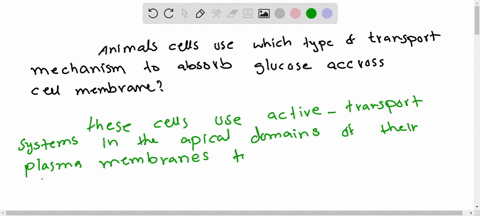 Animals cells use which type of transport
mechanism to absorb glucose accross
cell membrane?
these cells use active - transport
systems in the apical domains of their
plasma membranes t